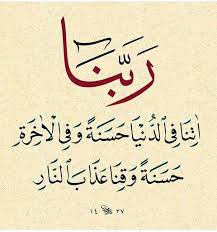 رَبَّنَا
اٰتِنَا فِي الدُّنْيَا حَسَنَةً وَفِي الْاٰخِرَةِ
حَسَنَةً وَقِنَا عَذَابَ النَّارِ
١٤٣٧